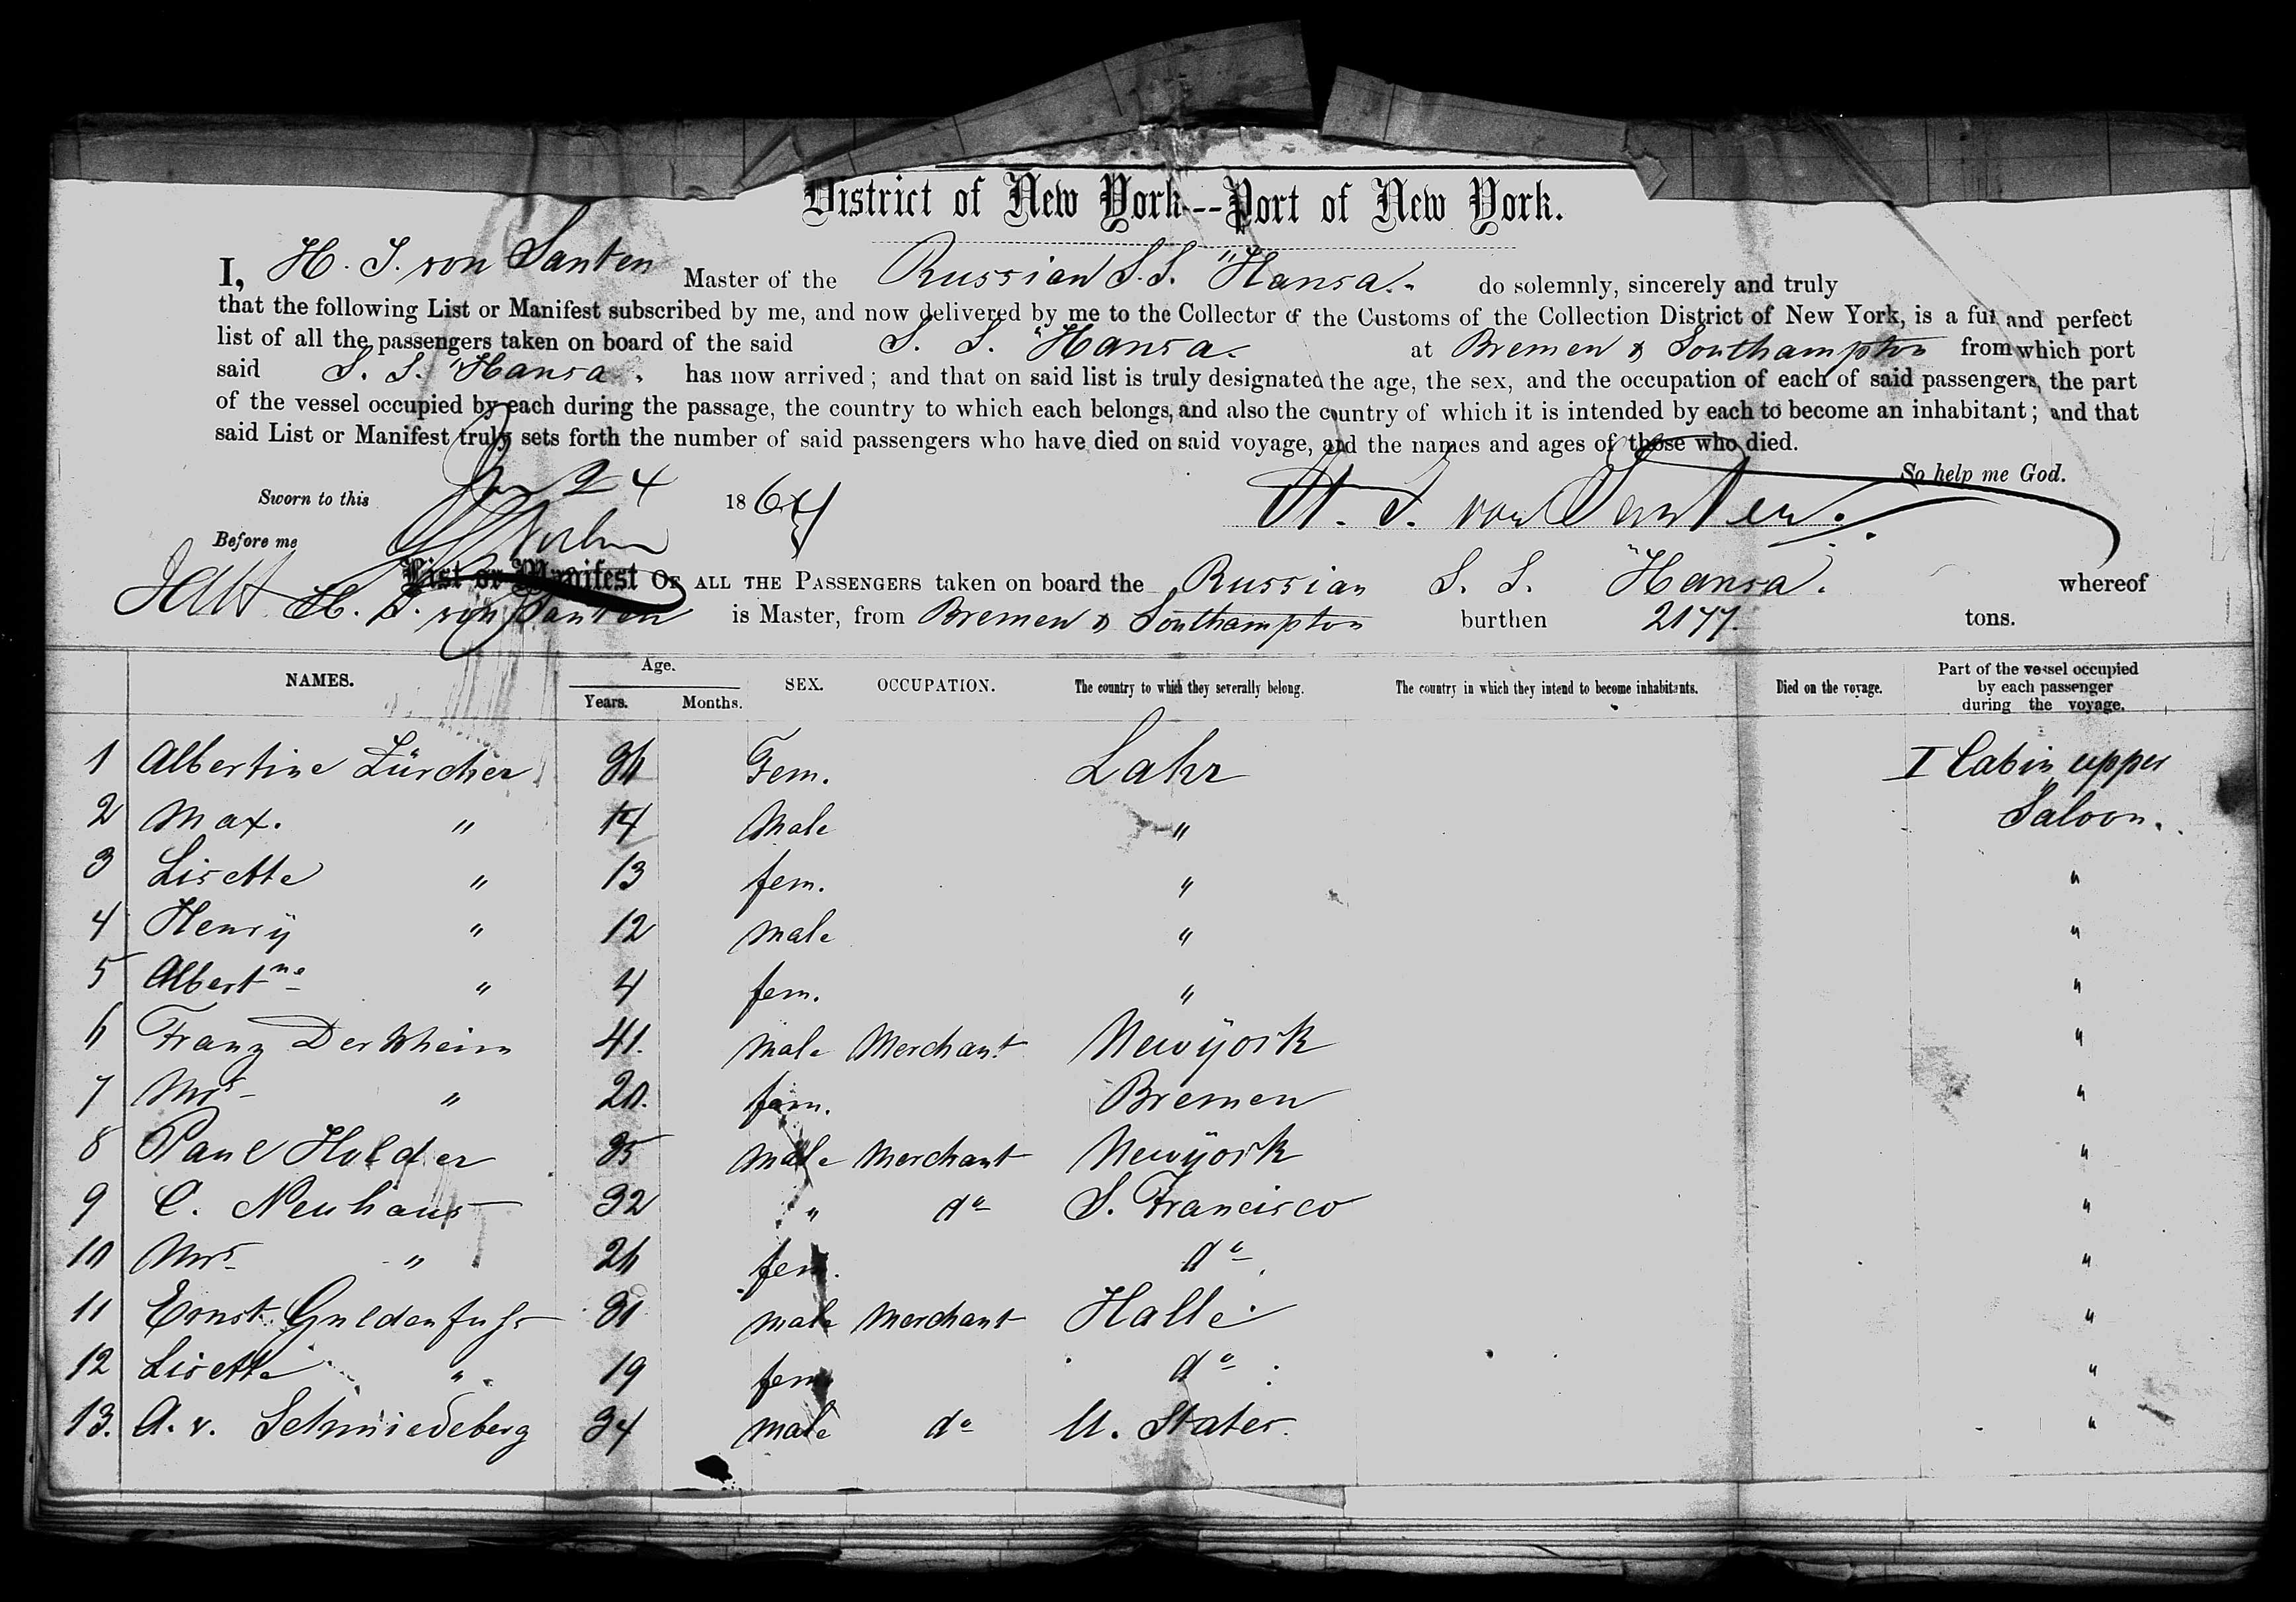 District of New York--Port of New York.
I, H. J. von Santen Master of the Russian S.S. "Hansa." do solemnly, sincerely and truly
that the following List or Manifest subscribed by me, and now delivered by me to the Collector of the Customs of the Collection District of New York, is a full and perfect
list of all the passengers taken on board of the said S. S. "Hansa. at Bremen & Southampton from which port
said S. S. "Hansa". has now arrived; and that on said list is truly designated the age, the sex, and the occupation of each of said passengers, the part
of the vessel occupied by each during the passage, the country to which each belongs, and also the country of which it is intended by each to become an inhabitant; and that
said List or Manifest truly sets forth the number of said passengers who have died on said voyage, and the names and ages of those who died.
So help me God.
Sworn to this 24 1864 H. J. von Santen.
Before me
List or Manifest OF ALL THE PASSENGERS taken on board the Russian S. S. "Hansa". whereof
H. J. von Santen is Master, from Bremen & Southampton burthen 2177. tons.
NAMES. Age. Years. Months. SEX. OCCUPATION. The country to which they severally belong. The country in which they intend to become inhabitants. Died on the voyage. Part of the vessel occupied by each passenger during the voyage.
1 Albertine Zürcher 36 Fem. Lahr I Cabin upper
2 Max. " 14 Male " Saloon.
3 Lisette " 13 fem. " "
4 Henrÿ " 12 male " "
5 Albertne " 4 fem. " "
6 Franz Derkheim 41. male Merchant Newÿork "
7 Mrs " 20. fem. Bremen "
8 Paul Holder 35 male Merchant Newÿork "
9 C. Neuhaus 32 " do S. Francisco "
10 Mrs " 26 fem. do "
11 Ernst Guldenfuhs 31 male Merchant Halle "
12 Lisette " 19 fem. do "
13. A. v. Schmiedeberg 34 male do U. States. "